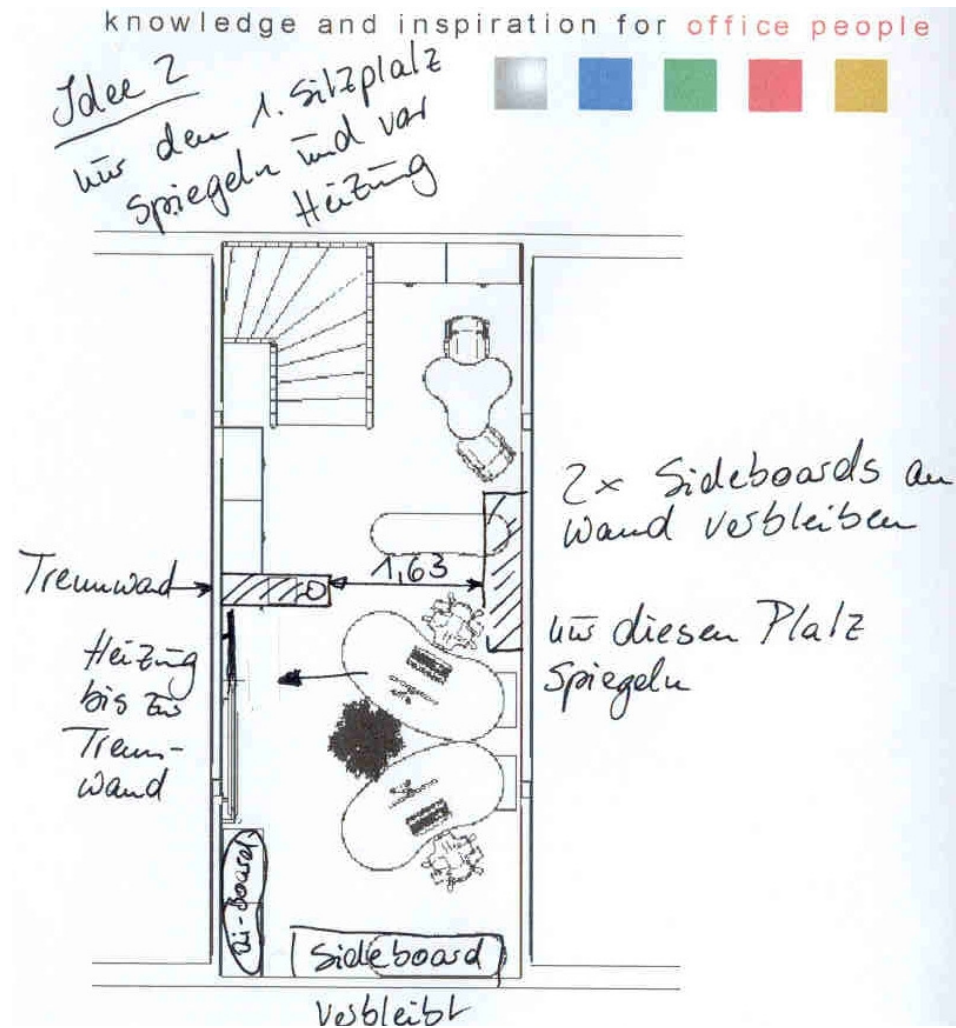 knowledge and inspiration for office people
Idee 2
nur den 1. Sitzplatz
spiegeln und vor
Heizung
2x Sideboards an
Wand verbleiben
1,63
Trennwad
nur diesen Platz
spiegeln
Heizung
bis zur
Trenn-
wand
Sideboard
verbleibt